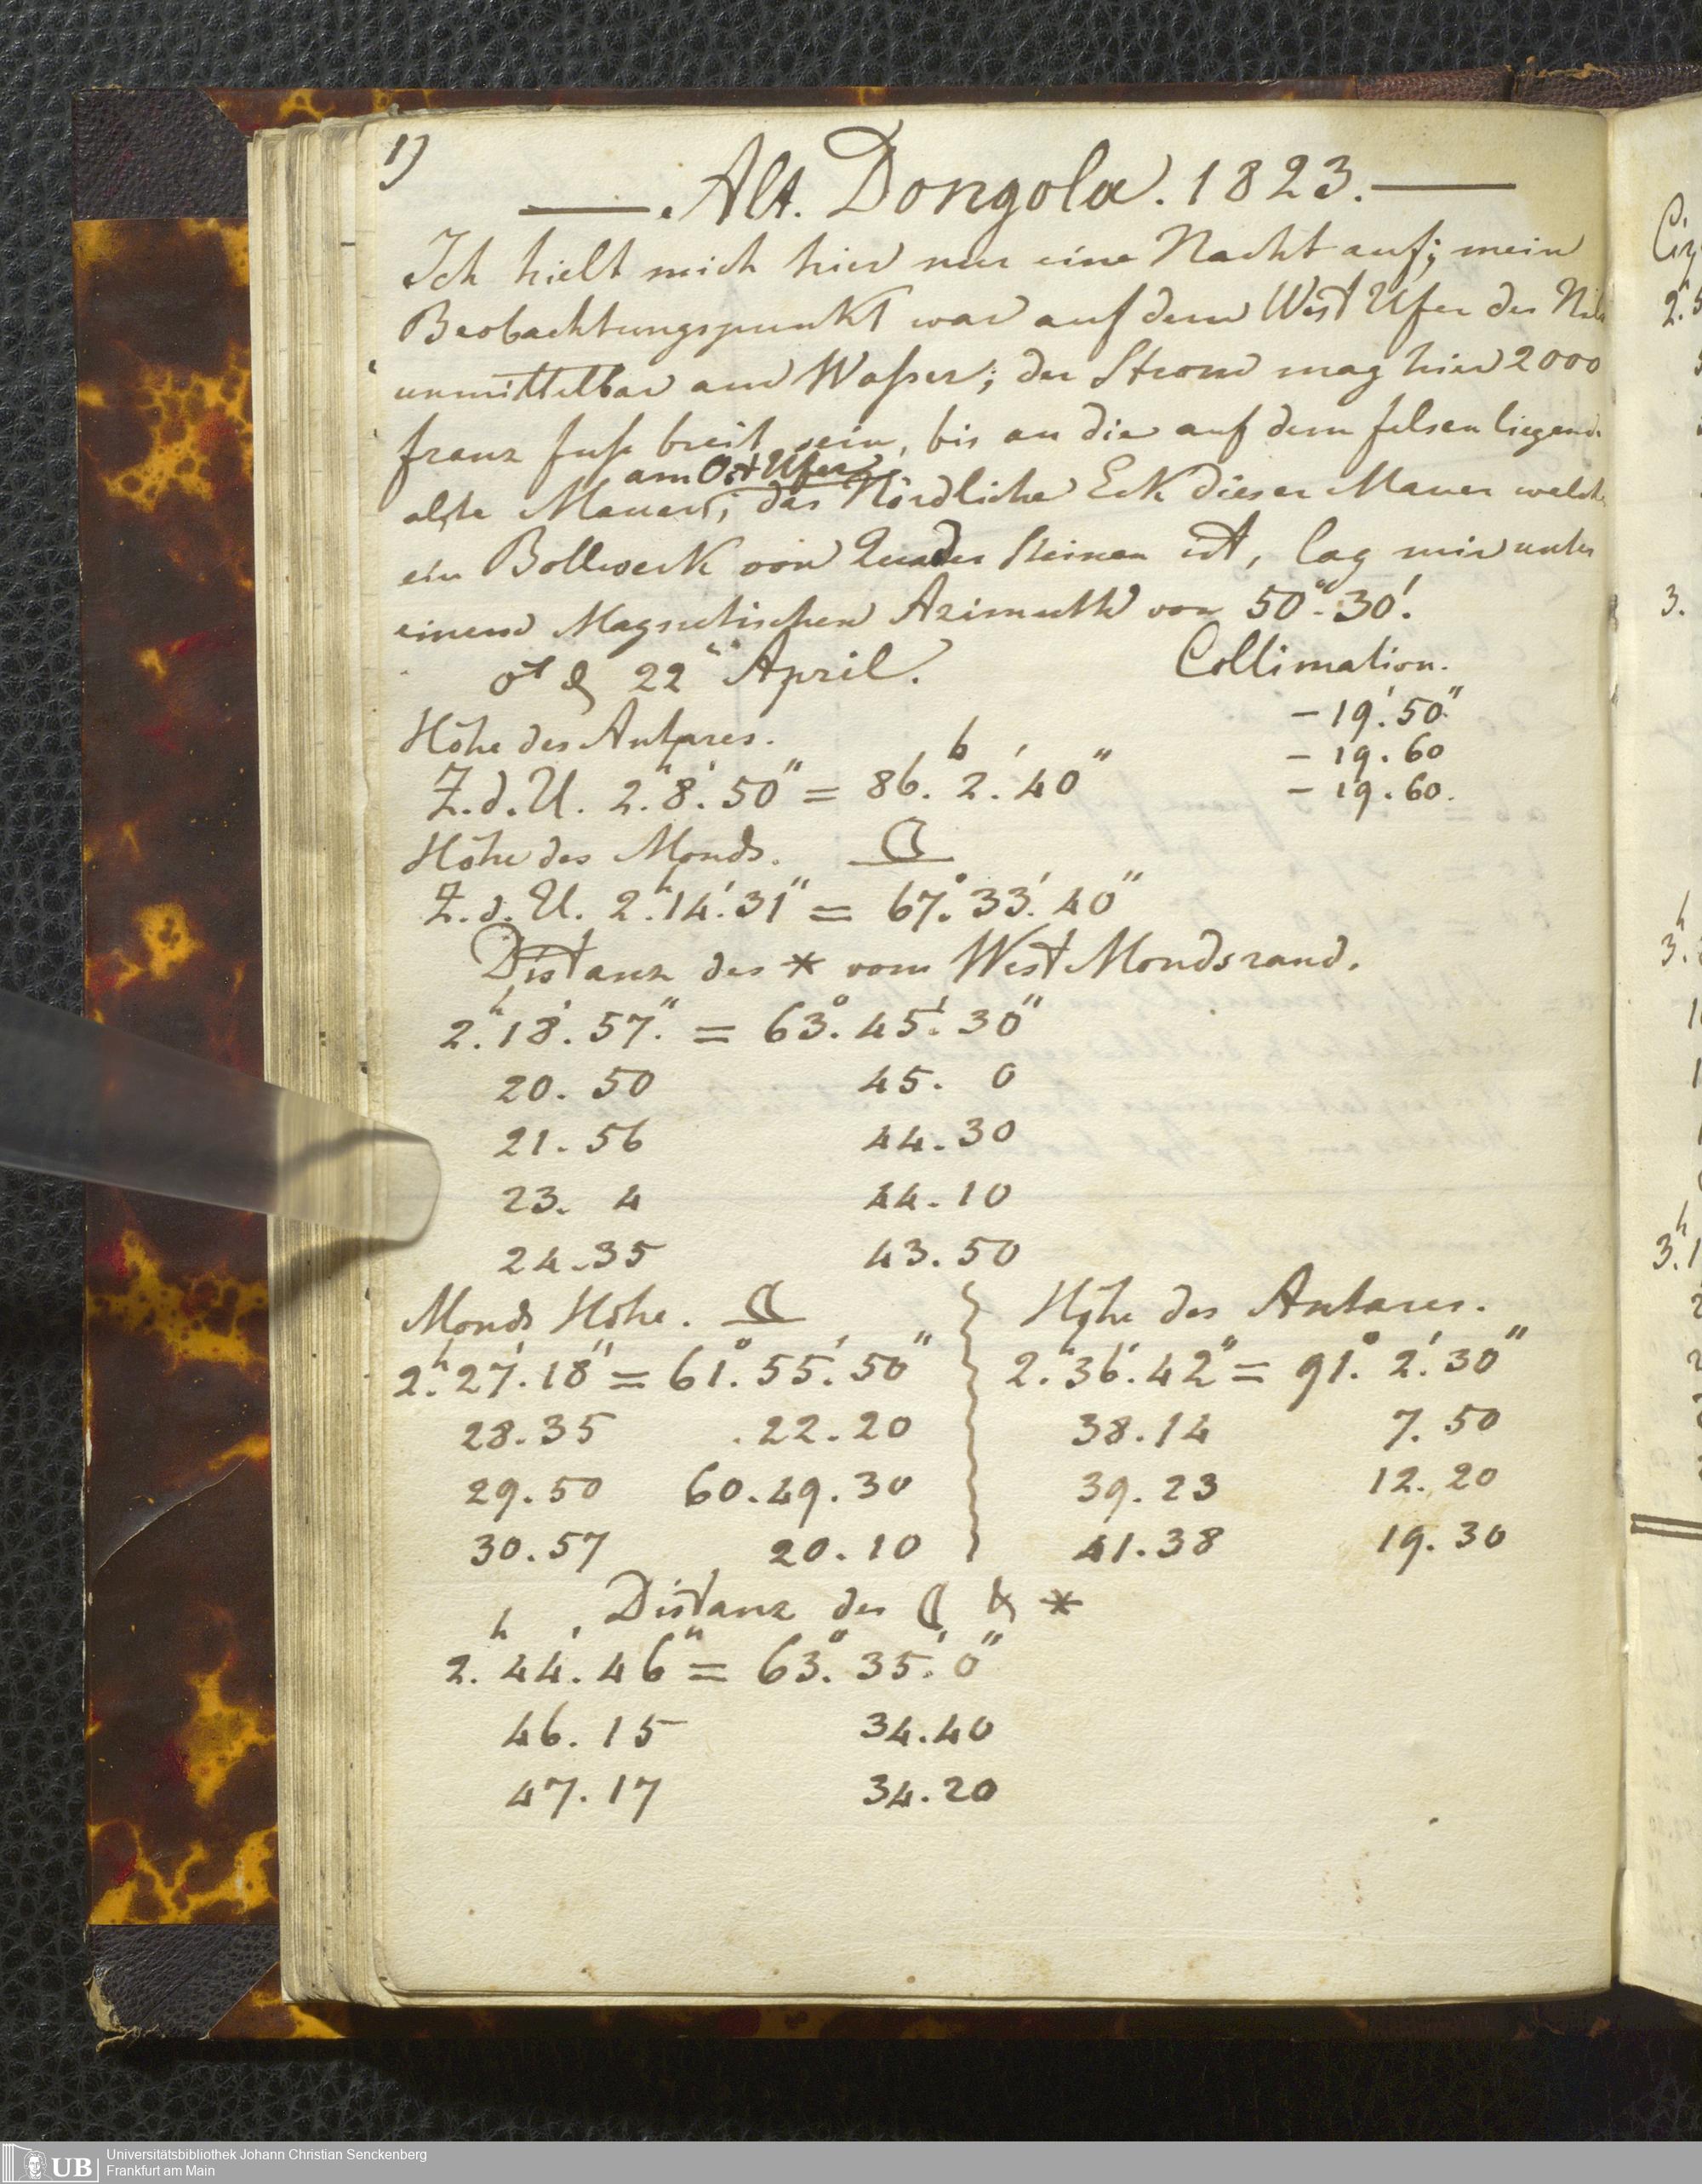 1)
Alt. Dongola. 1823.
Ich hielt mich hier nur eine Nacht auf; mein
Beobachtungspunkt war auf dem West Ufer des Nils
unmittelbar am Waßer; der Strom mag hier 2000
franz fuß breit sein, bis an die auf dem felsen liegende
am Ost Ufer
alte Mauer; das Nördliche Eck dieser Mauer welche
ein Bollwerk von Quader Steinen ist, lag mir unter
einem Magnetischen Azimuth von 50°. 30'.
♂ d 22ten April. Collimation.
Höhe des Antares. – 19'. 50"
– 19. 60
Z. d. U. 2.h 8'. 50" = 86.° 2.' 40" – 19. 60.
Höhe des Monds. ☾
Z. d. U. 2.h 14.' 31" = 67.° 33.' 40"
Distanz des * vom West Mondsrand.
2.h 18'. 57." = 63.° 45.' 30"
20. 50 45. 0
21. 56 44. 30
23. 4 44. 10
24. 35 43. 50
Monds Höhe. ☾ Höhe des Antares.
2.h 27'. 18" = 61.° 55.' 50" 2.h 36'. 42" = 91.° 2.' 30"
28. 35 . 22. 20 38. 14 7. 50
29. 50 60. 49. 30 39. 23 12. 20
30. 57 20. 10 41. 38 19. 30
Distanz des ☾ & *
2.h 44.' 46" = 63.° 35.' 0"
46. 15 34. 40
47. 17 34. 20
UB
Universitätsbibliothek Johann Christian Senckenberg
Frankfurt am Main